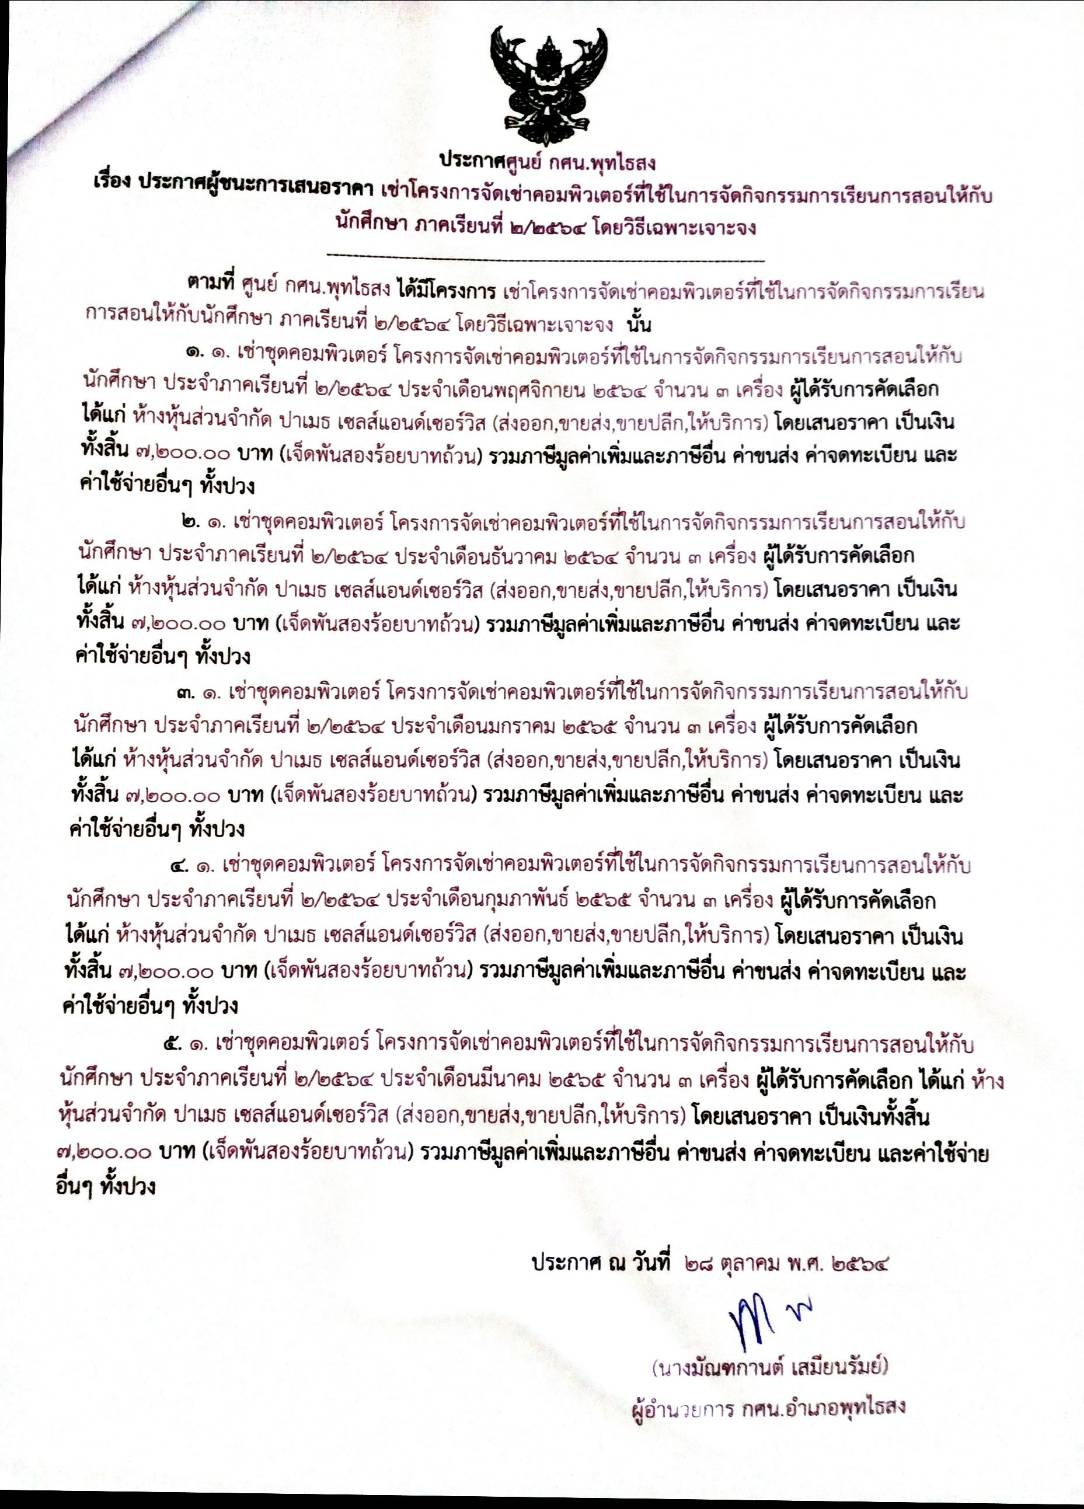 ประกาศศูนย์ กศน.พุทไธสง
เรื่อง ประกาศผู้ชนะการเสนอราคา เช่าโครงการจัดเช่าคอมพิวเตอร์ที่ใช้ในการจัดกิจกรรมการเรียนการสอนให้กับ
นักศึกษา ภาคเรียนที่ ๒/๒๕๖๔ โดยวิธีเฉพาะเจาะจง
ตามที่ ศูนย์ กศน.พุทไธสง ได้มีโครงการ เช่าโครงการจัดเช่าคอมพิวเตอร์ที่ใช้ในการจัดกิจกรรมการเรียน
การสอนให้กับนักศึกษา ภาคเรียนที่ ๒/๒๕๖๔ โดยวิธีเฉพาะเจาะจง นั้น
๑. ๑. เช่าชุดคอมพิวเตอร์ โครงการจัดเช่าคอมพิวเตอร์ที่ใช้ในการจัดกิจกรรมการเรียนการสอนให้กับ
นักศึกษา ประจำภาคเรียนที่ ๒/๒๕๖๔ ประจำเดือนพฤศจิกายน ๒๕๖๔ จำนวน ๓ เครื่อง ผู้ได้รับการคัดเลือก
ได้แก่ ห้างหุ้นส่วนจำกัด ปาเมธ เซลส์แอนด์เซอร์วิส (ส่งออก,ขายส่ง,ขายปลีก,ให้บริการ) โดยเสนอราคา เป็นเงิน
ทั้งสิ้น ๗,๒๐๐.๐๐ บาท (เจ็ดพันสองร้อยบาทถ้วน) รวมภาษีมูลค่าเพิ่มและภาษีอื่น ค่าขนส่ง ค่าจดทะเบียน และ
ค่าใช้จ่ายอื่นๆ ทั้งปวง
๒. ๑. เช่าชุดคอมพิวเตอร์ โครงการจัดเช่าคอมพิวเตอร์ที่ใช้ในการจัดกิจกรรมการเรียนการสอนให้กับ
นักศึกษา ประจำภาคเรียนที่ ๒/๒๕๖๔ ประจำเดือนธันวาคม ๒๕๖๔ จำนวน ๓ เครื่อง ผู้ได้รับการคัดเลือก
ได้แก่ ห้างหุ้นส่วนจำกัด ปาเมธ เซลส์แอนด์เซอร์วิส (ส่งออก,ขายส่ง,ขายปลีก,ให้บริการ) โดยเสนอราคา เป็นเงิน
ทั้งสิ้น ๗,๒๐๐.๐๐ บาท (เจ็ดพันสองร้อยบาทถ้วน) รวมภาษีมูลค่าเพิ่มและภาษีอื่น ค่าขนส่ง ค่าจดทะเบียน และ
ค่าใช้จ่ายอื่นๆ ทั้งปวง
๓. ๑. เช่าชุดคอมพิวเตอร์ โครงการจัดเช่าคอมพิวเตอร์ที่ใช้ในการจัดกิจกรรมการเรียนการสอนให้กับ
นักศึกษา ประจำภาคเรียนที่ ๒/๒๕๖๔ ประจำเดือนมกราคม ๒๕๖๕ จำนวน ๓ เครื่อง ผู้ได้รับการคัดเลือก
ได้แก่ ห้างหุ้นส่วนจำกัด ปาเมธ เซลส์แอนด์เซอร์วิส (ส่งออก,ขายส่ง,ขายปลีก,ให้บริการ) โดยเสนอราคา เป็นเงิน
ทั้งสิ้น ๗,๒๐๐.๐๐ บาท (เจ็ดพันสองร้อยบาทถ้วน) รวมภาษีมูลค่าเพิ่มและภาษีอื่น ค่าขนส่ง ค่าจดทะเบียน และ
ค่าใช้จ่ายอื่นๆ ทั้งปวง
๔. ๑. เช่าชุดคอมพิวเตอร์ โครงการจัดเช่าคอมพิวเตอร์ที่ใช้ในการจัดกิจกรรมการเรียนการสอนให้กับ
นักศึกษา ประจำภาคเรียนที่ ๒/๒๕๖๔ ประจำเดือนกุมภาพันธ์ ๒๕๖๕ จำนวน ๓ เครื่อง ผู้ได้รับการคัดเลือก
ได้แก่ ห้างหุ้นส่วนจำกัด ปาเมธ เซลส์แอนด์เซอร์วิส (ส่งออก,ขายส่ง,ขายปลีก,ให้บริการ) โดยเสนอราคา เป็นเงิน
ทั้งสิ้น ๗,๒๐๐.๐๐ บาท (เจ็ดพันสองร้อยบาทถ้วน) รวมภาษีมูลค่าเพิ่มและภาษีอื่น ค่าขนส่ง ค่าจดทะเบียน และ
ค่าใช้จ่ายอื่นๆ ทั้งปวง
๕. ๑. เช่าชุดคอมพิวเตอร์ โครงการจัดเช่าคอมพิวเตอร์ที่ใช้ในการจัดกิจกรรมการเรียนการสอนให้กับ
นักศึกษา ประจำภาคเรียนที่ ๒/๒๕๖๔ ประจำเดือนมีนาคม ๒๕๖๕ จำนวน ๓ เครื่อง ผู้ได้รับการคัดเลือก ได้แก่ ห้าง
หุ้นส่วนจำกัด ปาเมธ เซลส์แอนด์เซอร์วิส (ส่งออก,ขายส่ง,ขายปลีก,ให้บริการ) โดยเสนอราคา เป็นเงินทั้งสิ้น
๗,๒๐๐.๐๐ บาท (เจ็ดพันสองร้อยบาทถ้วน) รวมภาษีมูลค่าเพิ่มและภาษีอื่น ค่าขนส่ง ค่าจดทะเบียน และค่าใช้จ่าย
อื่นๆ ทั้งปวง
ประกาศ ณ วันที่ ๒๘ ตุลาคม พ.ศ. ๒๕๖๔
(นางมัณฑกานต์ เสมียนรัมย์)
ผู้อำนวยการ กศน.อำเภอพุทไธสง